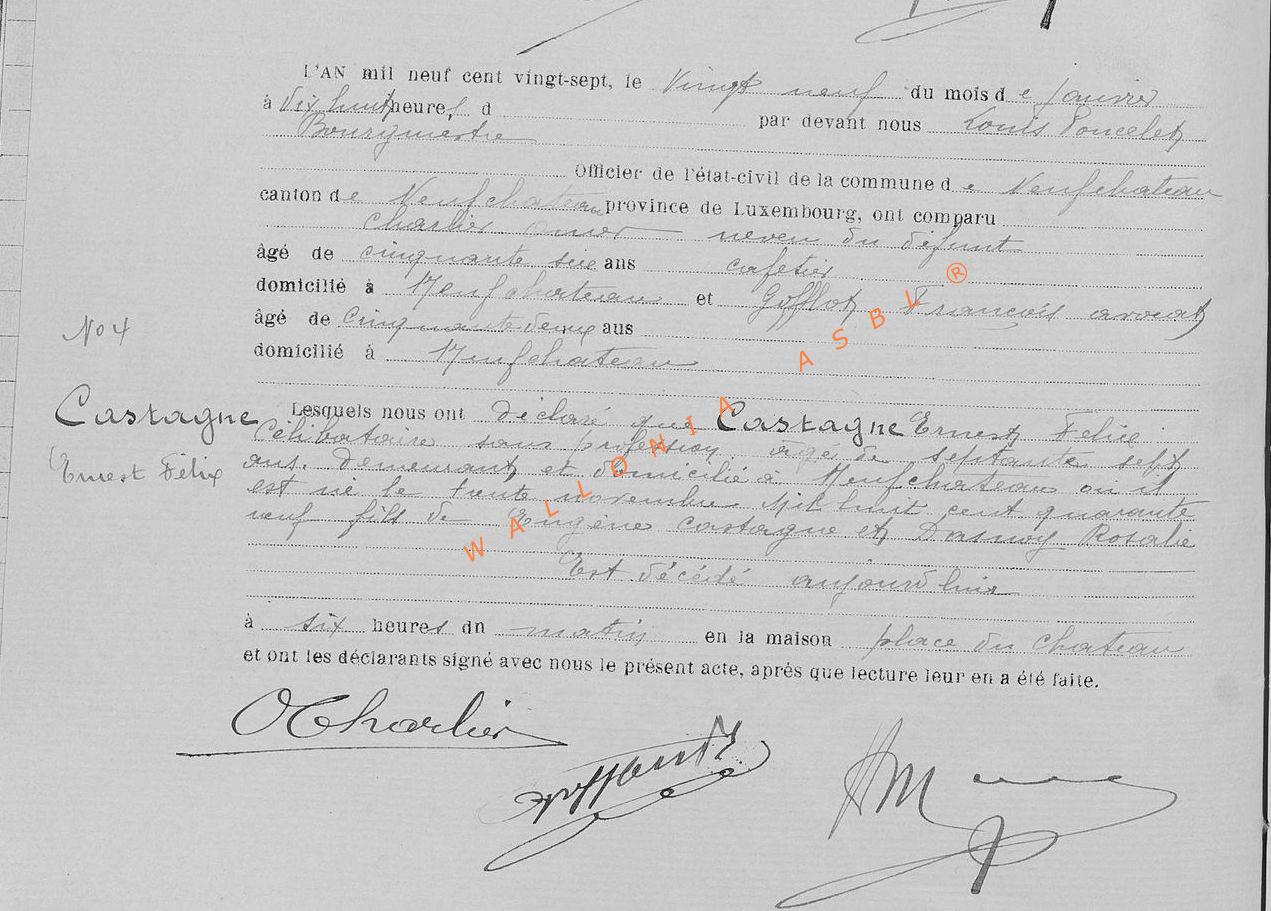 L'AN mil neuf cent vingt-sept, le Vingt neuf du mois de janvier
à dix huit heures d par devant nous Louis Poncelet
Bourgmestre
Officier de l'état-civil de la commune de Neufchateau
canton de Neufchateau province de Luxembourg, ont comparu
Charlier Omer neveu du défunt
âgé de cinquante six ans cafetier
domicilié à Neufchateau et Gofflot François avocat
No 4
âgé de cinquante deux ans
domicilié à Neufchateau
Castagne
Ernest Félix
Lesquels nous ont déclaré que Castagne Ernest Félix
célibataire sans profession âgé de septante sept
ans, demeurant et domicilié à Neufchateau où il
est né le trente novembre mil huit cent quarante
neuf fils de Eugène Castagne et Dasnoy Rosalie
Est décédé aujourd'hui
à six heures du matin en la maison place du Chateau
et ont les déclarants signé avec nous le présent acte, après que lecture leur en a été faite.
OCharlier
WALLONIA ASBL ®